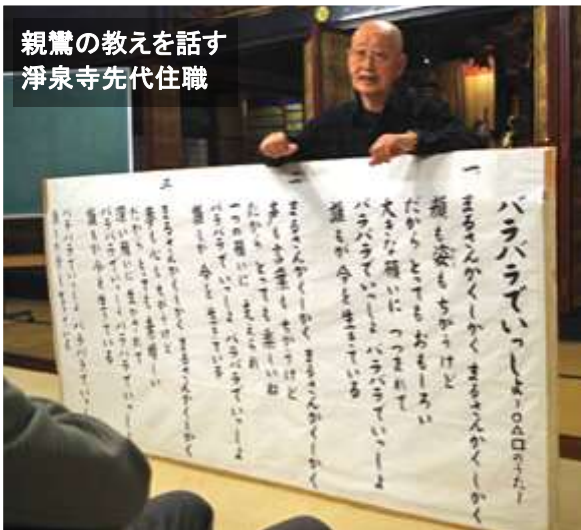 親鸞の教えを話す
淨泉寺先代住職
バラバラでいっしょ－○△□のうた－
一
まるさんかくしかく まるさんかくしかく
顔も姿もちがうけど
だから とってもおもしろい
大きな願いに つつまれて
バラバラでいっしょ バラバラでいっしょ
誰もが 今を生きている
二
まるさんかくしかく まるさんかくしかく
声も言葉も ちがうけど
だから とっても楽しいね
一つの願いに 支えられ
バラバラでいっしょ バラバラでいっしょ
誰もが 今を生きている
三
まるさんかくしかく まるさんかくしかく
夢も心も ちがうけど
だから とっても素晴しい
深い願いに 生かされて
バラバラでいっしょ バラバラでいっしょ
誰もが 今を生きている
バラバラでいっしょ バラバラでいっしょ